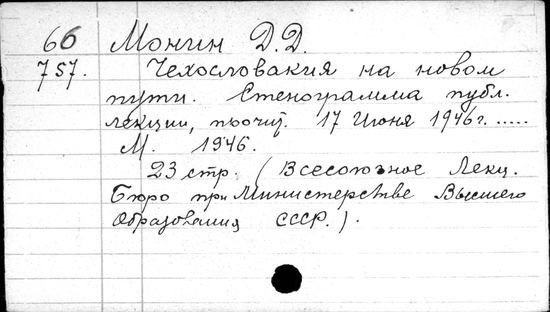 66 Монин Д.Д.
757. Чехословакия на новом
пути. Стенограмма публ.
лекции, прочит. 17 Июня 1946г. .....
М. 1946.
23 стр. (Всесоюзное Лекц.
Бюро при Министерстве Высшего
Образования СССР.).